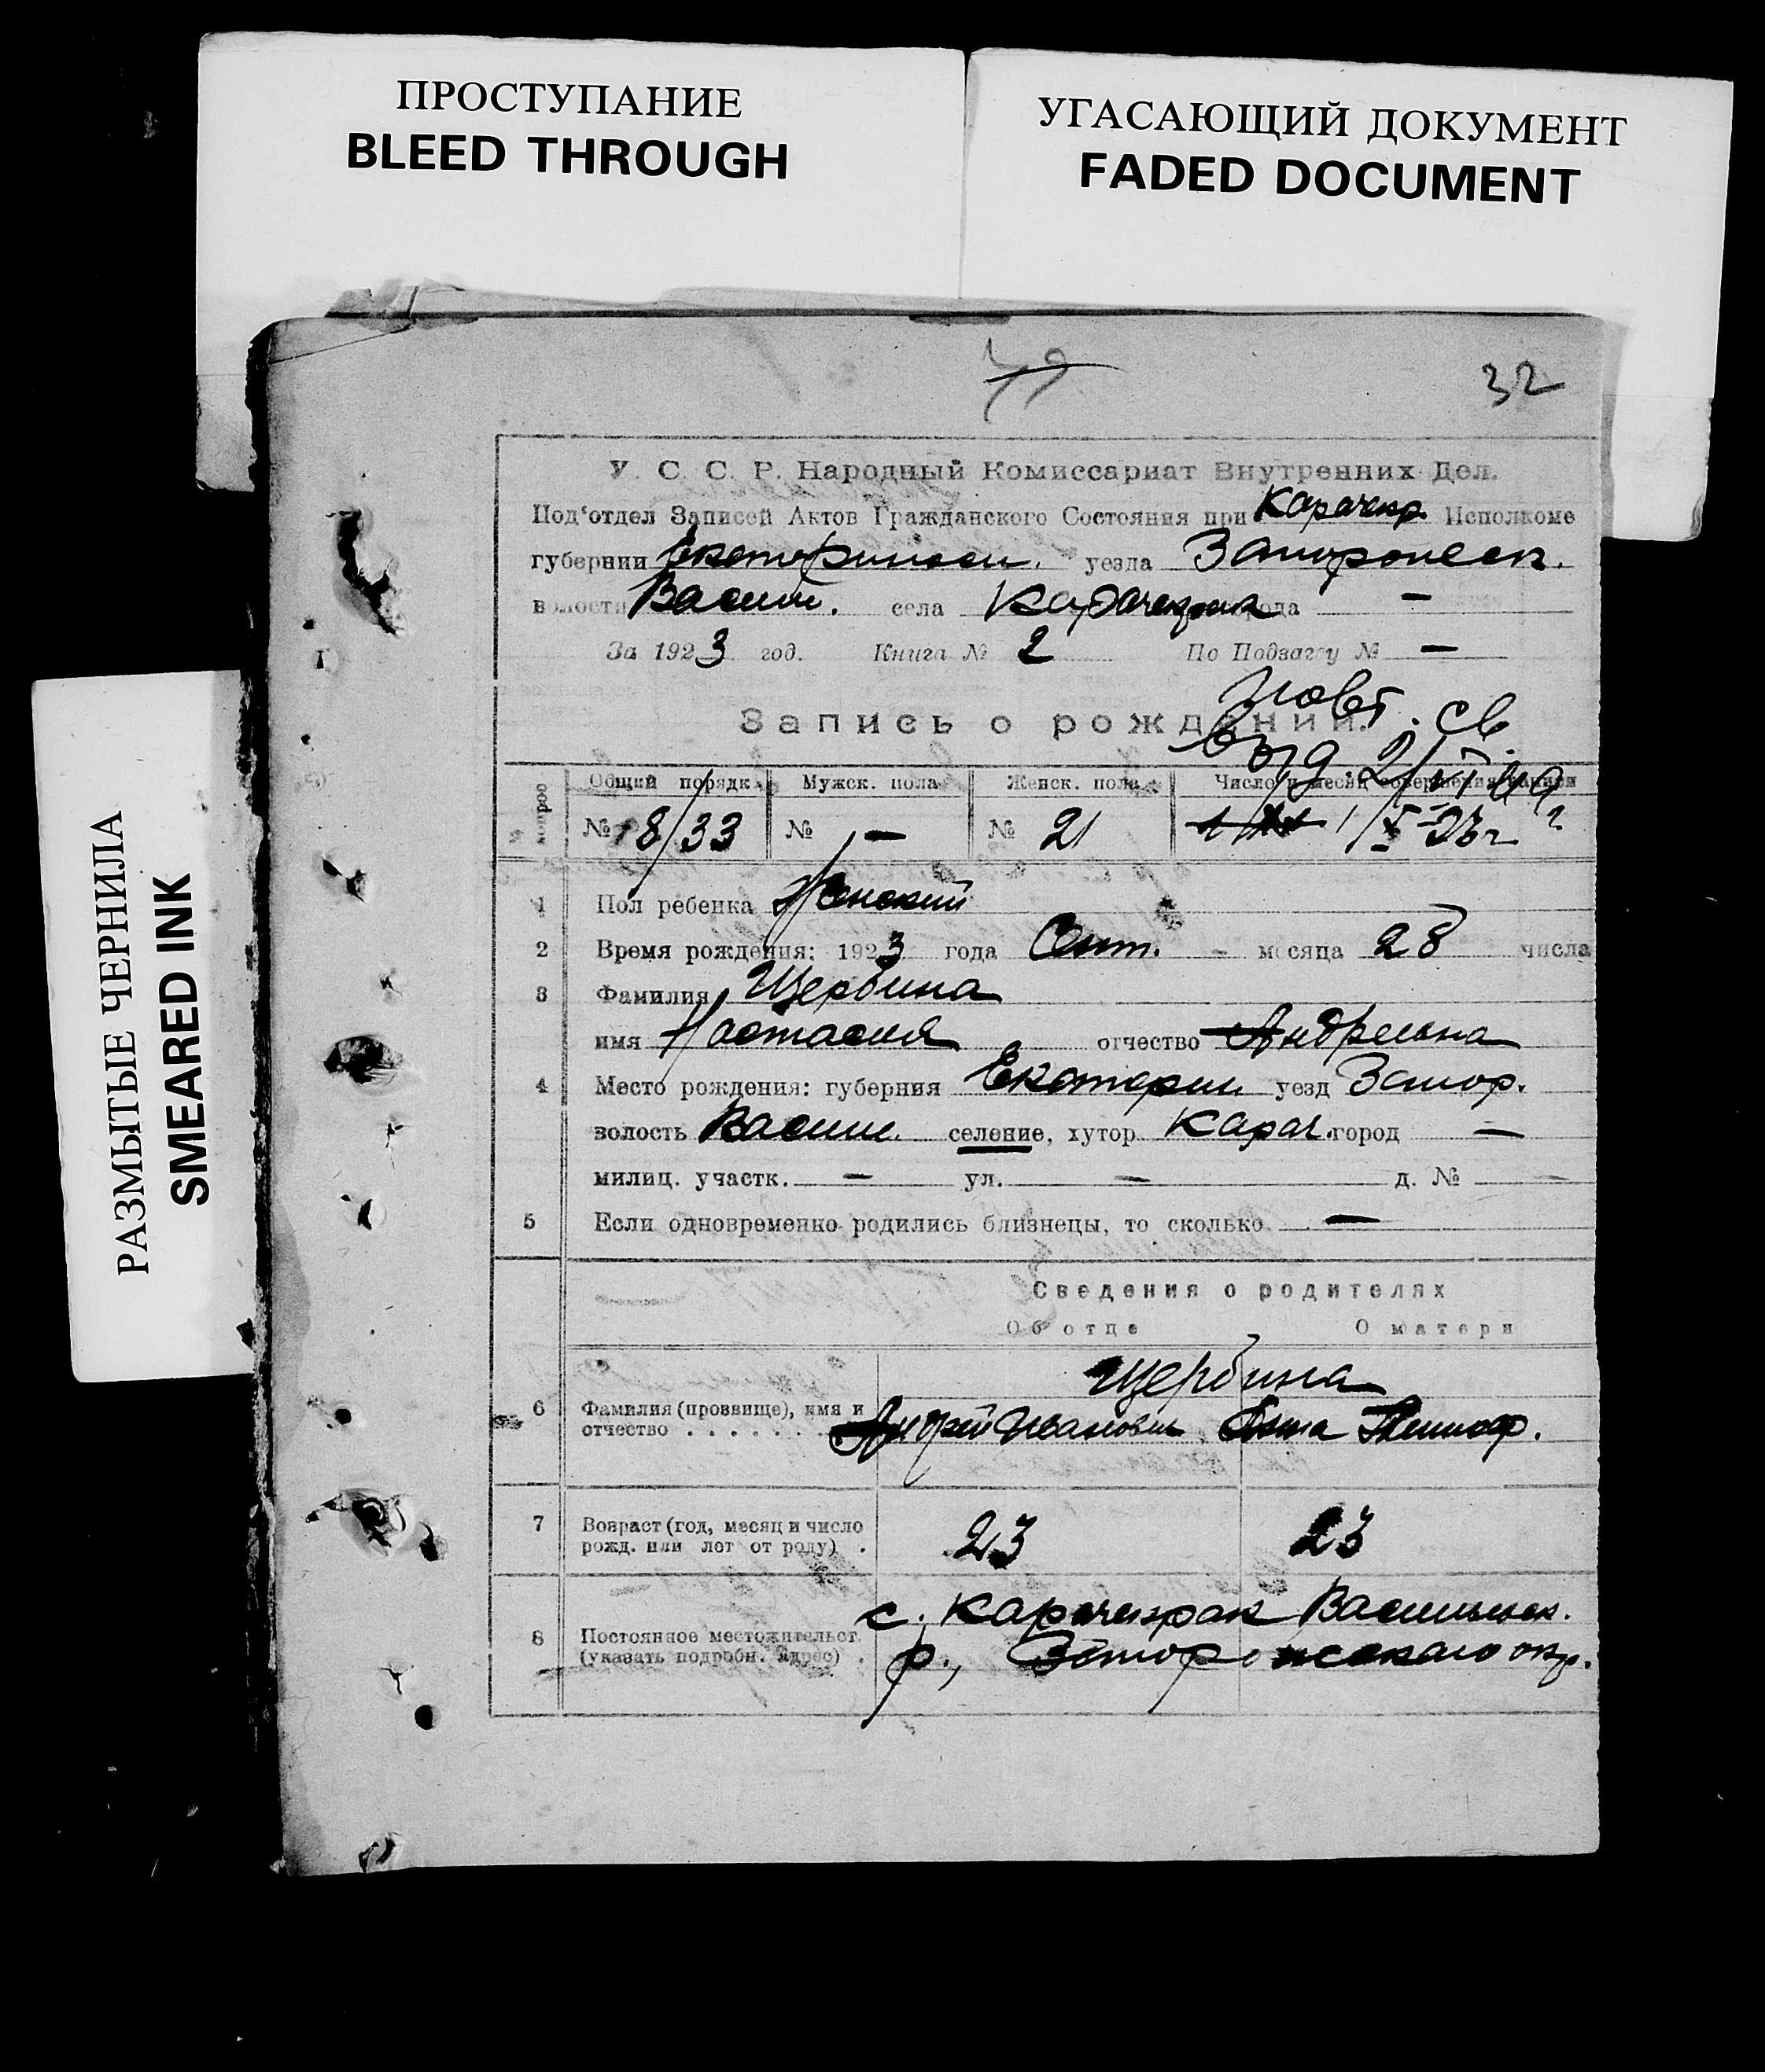 ПРОСТУПАНИЕ
BLEED THROUGH
УГАСАЮЩИЙ ДОКУМЕНТ
FADED DOCUMENT
РАЗМЫТЫЕ ЧЕРНИЛА
SMEARED INK
32
У. С. С. Р. Народный Комиссариат Внутренних Дел.
Под'отдел Записей Актов Гражданского Состояния при Карачекр. Исполкоме
губернии Екатериносл. уезла Запорожск.
волости Васил. села Карачекрак города —
За 1923 год. Книга № 2 По Подзагсу № —
Запись о рождении.
Повт. св.
выд. 2/VI
№ вопрос Общий порядк. Мужск. пола Женск. пола Число и месяц совершения записи
№ 18/33 № — № 21 1/X-23 г.
1 Пол ребенка Женский
2 Время рождения: 1923 года Сент. месяца 28 числа
3 Фамилия Щербина
имя Настасия отчество Андреевна
4 Место рождения: губерния Екатерин. уезд Запор.
волость Васил. селение, хутор Карач. город —
милиц. участк. — ул. — д. № —
5 Если одновременно родились близнецы, то сколько —
Сведения о родителях
Об отце О матери
Щербина
6 Фамилия (прозвище), имя и
отчество . . . . . . . Андрей Иванович Анна
7 Возраст (год, месяц и число
рожд. или лет от роду) . 23 23
8 Постоянное местожительст.
(указать подробн. адрес) .
с. Карачекрак Васильевск.
р., Запорожскаго окр.